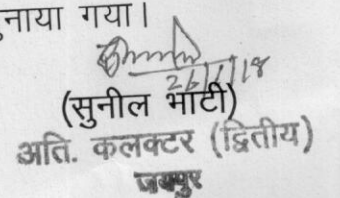 नाया गया।
26/1/18
(सुनील भाटी)
अति. कलक्टर (द्वितीय)
जयपुर